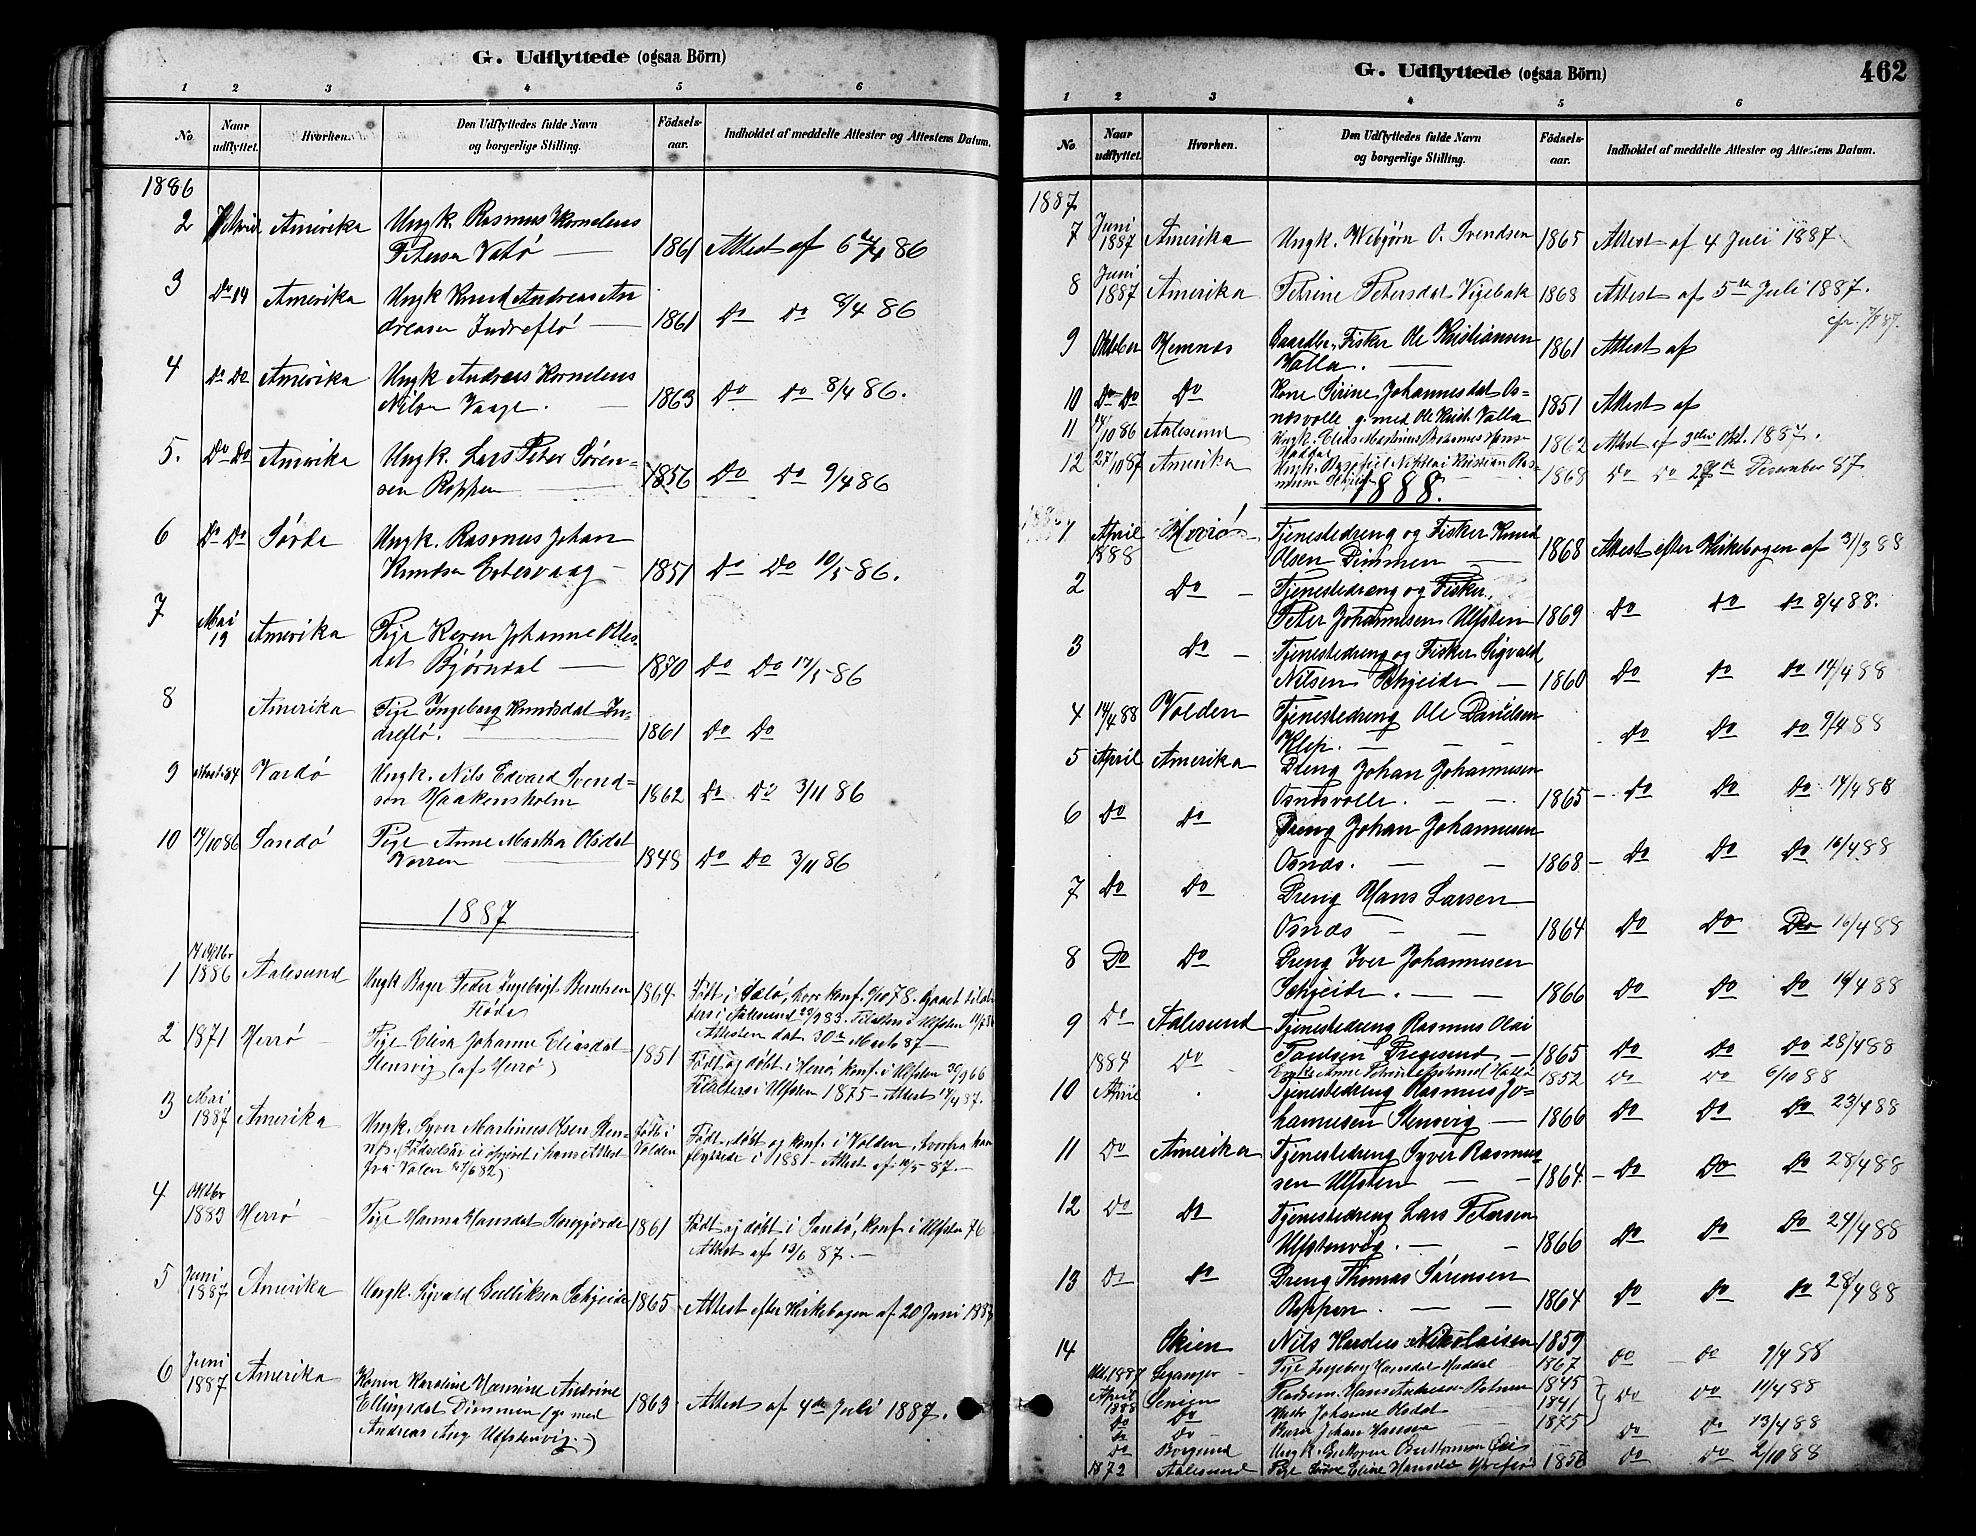 G. Udflyttede (ogsaa Börn)
1 2 3 4 5 6
No. Naar udflyttet. Hvorhen. Den Udflyttedes fulde Navn og borgerlige Stilling. Födsels-aar. Indholdet af meddelte Attester og Attestens Datum.
1886
2 Amerika Ungk. Rasmus Kornelius
Petersen Vatö 1861 Attest af 6/4 86
3 Do 14 Amerika Ungk Knud Andreas An
dreasen Indreflö 1861 Do Do 8/4 86
4 Do Do Amerika Ungk Andreas Kornelius
Nilsen Vaage. 1863 Do Do 8/4 86.
5. Do Do Amerika Ungk. Lars Peter Sören-
sen Roppen 1856 Do Do 9/4 86
6 Do Do Ungk. Rasmus Johan
Knudsen 1851 Do Do 10/5 86.
7 Mai 19 Amerika Pige Karen Johanne Olles-
dat Bjørndal 1870 Do Do 17/5 86
8 Amerika Pige Ingeborg Knudsdat In-
dreflö. 1861 Do Do
9 Vardø Ungk. Nils Edvard Svend-
sen Haakensholm 1862 Do Do 3/11 86
10 14/10 86 Sandö Pige Anne Martha Olsdat
1848 Do Do 3/11 86
1887
1 1886 Aalesund Ungk Bager Peder Ingebrigt Berntsen
Flöde 1864 Født i hvor konf. 78.
fers i Aalesund 23/9 83. Tilalters i Ulfsten
Attesten dat 30te Marts 87
2 1871 Herrø Pige Elisa Johanne Eliasdat
Stensvig (af Herrø) 1851 Født og døbt i Herrø, konf. i Ulfsten 30/9 66
Tilalters i Ulfsten 1875 – Attest 14/4 87.
3 Mai 1887 Amerika Ungk. Syver Martinus Olsen
Fødselsaar ei opgivet i hans Attest
fra Volden Født i Volden Født, døbt og konf. i Volden, hvorfra han
flyttede i 188 – Attest af 10/5 87.
4 Oktbr 1883 Herrø Pige Hanna Hansdat 1861 Født og døbt i Sandö, konf. i Ulfsten 76
Attest af 13/6 87.
5 Juni 1887 Amerika Ungk. Sigvald Gulliksen Schjeide 1865 Attest efter Kirkebogen af 20 Juni 1887
6 Juni 1887 Amerika Karen Karoline Andrine
Ellingsdat Dimmen (g. med
Andreas Aug. Ulfstenvig.) 1863 Attest af 4de Juli 1887.
G. Udflyttede (ogsaa Börn) 462
1 2 3 4 5 6
No. Naar udflyttet. Hvorhen. Den Udflyttedes fulde Navn og borgerlige Stilling. Födsels-aar. Indholdet af meddelte Attester og Attestens Datum.
1887
7 Juni 1887 Amerika Ungk. Webjørn O. Svendsen 1865 Attest af 4 Juli 1887
8 Juni 1887 Amerika Petrine Petersdat Vigebak 1868 Attest af 5te Juli 1887.
9 Oktober Hemnæs Fisker Ole Kristiansen
Valla. 1861 Attest af
10 Do Do Do Kone Sirine Johannesdat Os-
næsvolle g. med Ole Krist. Valla 1851 Attest af
11 14/10 86 Aalesund Ungk. Martinus 1862 Attest af Okt. 1887.
12 27/10 87 Amerika Ungk. Nikolai Kristian Ras-
mussen Schjeide 1868 Do Do December 87
1888.
1 April 1888 Tjenestedreng og Fisker Knud
Olsen Dimmen 1868 Attest efter Kirkebogen af 31/3 88
2 Do Tjenestedreng og Fisker,
Peter Johannesen Ulfsten 1869 Do Do Do 8/4 88.
3 Do Tjenestedreng og Fisker Sigvald
Nilsen Schjeide 1860 Do Do Do 14/4 88
4 14/4 88 Volden Tjenestedreng Ole Danielsen
Klep. Do Do Do 9/4 88
5 April Amerika Dreng Johan Johannesen
Osnæsvolle. 1865 Do Do Do 14/4 88
6 Do Do Dreng Johan Johannesen
Osnæs. 1868 Do Do Do 16/4 88
7 Do Do Dreng Hans Larsen
Osnæs 1864 Do Do Do 16/4 88
8 Do Do Dreng Iver Johannesen
Schjeide. 1866 Do Do Do 16/4 88
9 Do Aalesund Tjenestedreng Rasmus Olai
Paulsen Dragesund 1865 Do Do Do 28/4 88
1884 Do Anne 1852 Do Do 6/10 88
10 April Tjenestedreng Rasmus Jo-
hannesen Stensvig 1866 Do Do Do 23/4 88
11 Do Amerika Tjenestedreng Syver Rasmus-
sen Ulfsten 1864 Do Do Do 28/4 88
12 Do Do Tjenestedreng Lars Petersen
Ulfstenvig. 1866 Do Do Do 24/4 88
13 Do Do Dreng Thomas Sørensen
Roppen. 1864 Do Do Do 28/4 88
14 Skien Nils Nikolaisen 1859
Okt. 1887 Pige Ingeborg Hansdat Haddal 1867 Do Do 9/4 88
April 1888 Senjen Hans Andreas 1845 Do Do 11/4 88
Do Do Johanne Olsdat 1841
Do Do Barn Johan Hansen 1875 Do Do 13/4 88
Do Borgund Ungk. Do Do 2/10 88
1872 Aalesund Pige Eline Hansdat 1856 Do Do 2/10 88